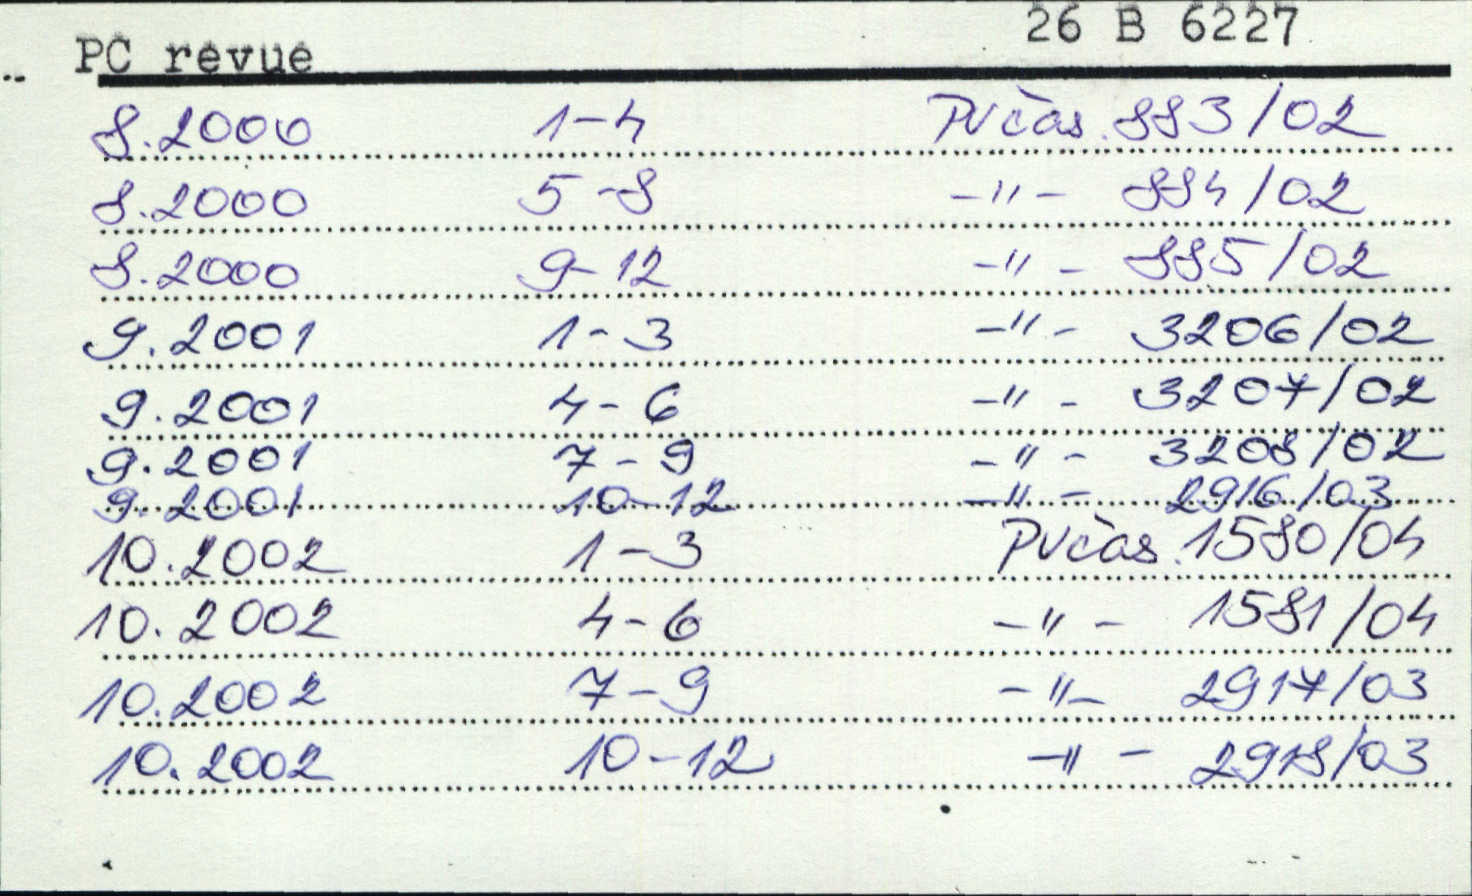 26 B 6227
PC revue
8.2000 1-4 PVčas. 883/02
8.2000 5-8 -"- 884/02
8.2000 9-12 -"- 885/02
9.2001 1-3 -"- 3206/02
9.2001 4-6 -"- 3207/02
9.2001 7-9 -"- 3208/02
9.2001 10-12 -"- 2916/03
10.2002 1-3 PVčas. 1580/04
10.2002 4-6 -"- 1581/04
10.2002 7-9 -"- 2917/03
10.2002 10-12 -"- 2918/03